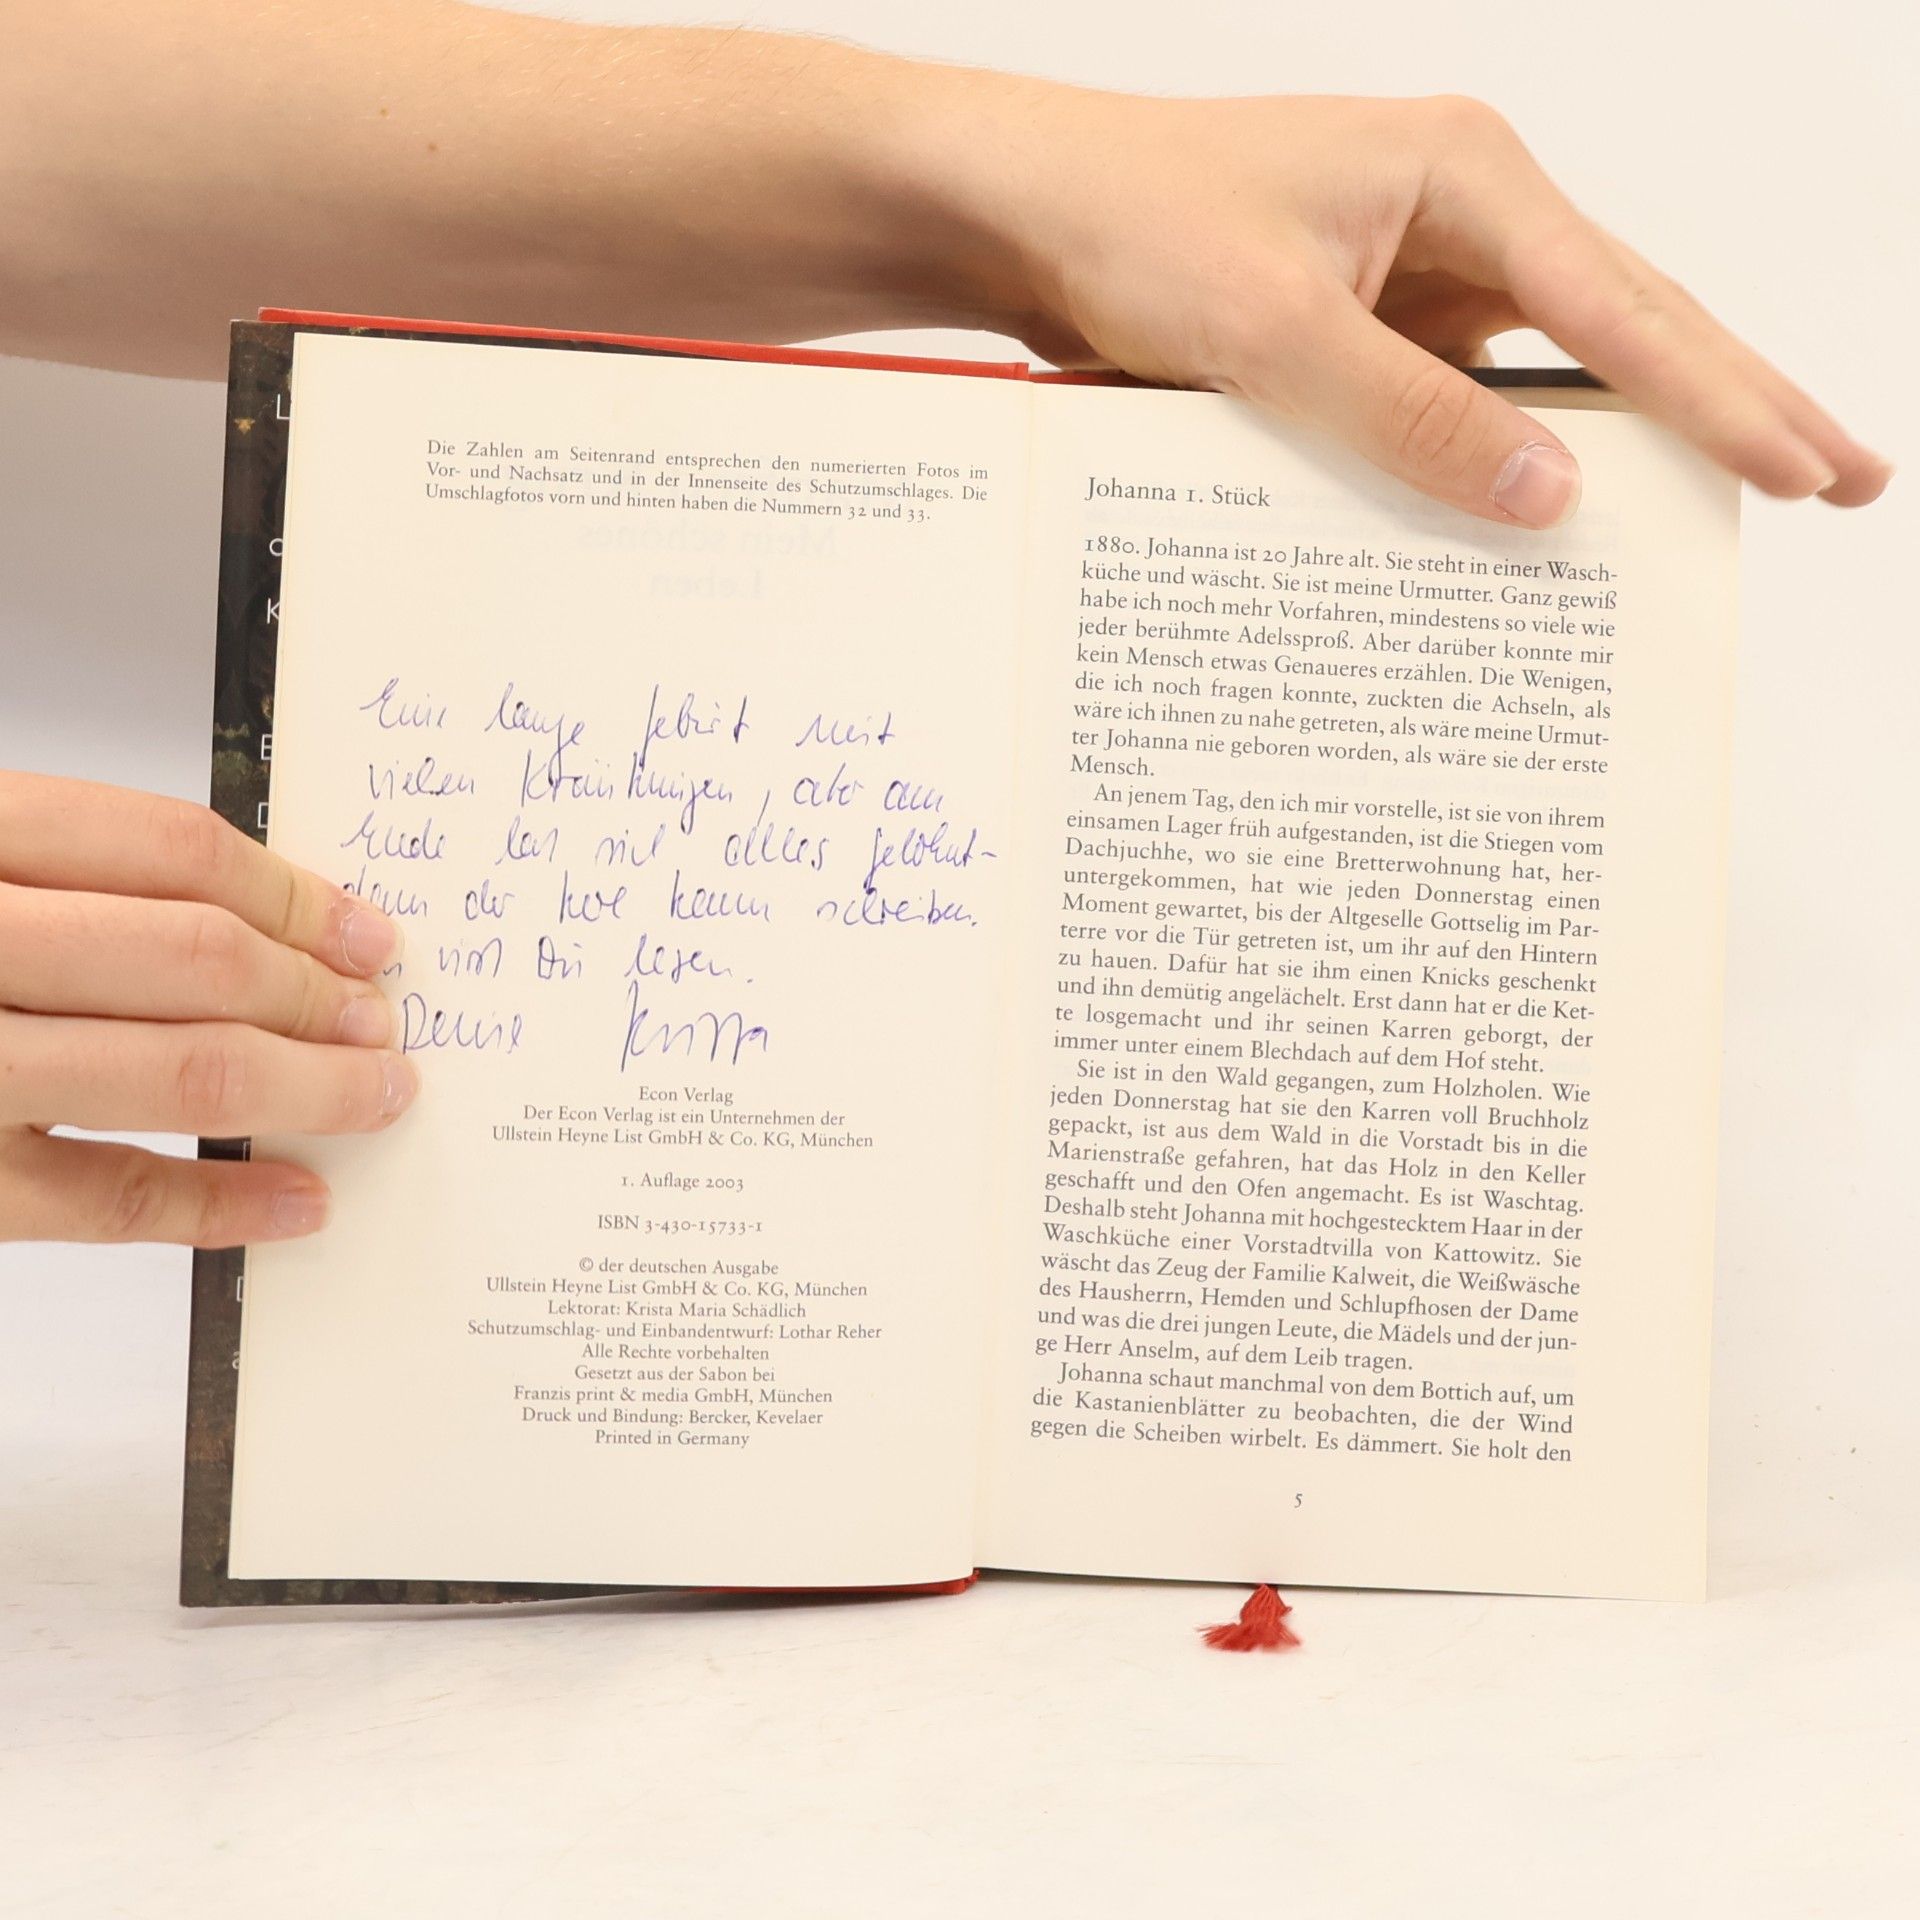 Die Zahlen am Seitenrand entsprechen den numerierten Fotos im
Vor- und Nachsatz und in der Innenseite des Schutzumschlages. Die
Umschlagfotos vorn und hinten haben die Nummern 32 und 33.
Eine lange Geburt mit
vielen Kränkungen, aber am
Ende hat sich alles gelohnt-
denn der kann schreiben.
wirst Du lesen.
Deine Krista
Econ Verlag
Der Econ Verlag ist ein Unternehmen der
Ullstein Heyne List GmbH & Co. KG, München
1. Auflage 2003
ISBN 3-430-15733-1
© der deutschen Ausgabe
Ullstein Heyne List GmbH & Co. KG, München
Lektorat: Krista Maria Schädlich
Schutzumschlag- und Einbandentwurf: Lothar Reher
Alle Rechte vorbehalten
Gesetzt aus der Sabon bei
Franzis print & media GmbH, München
Druck und Bindung: Bercker, Kevelaer
Printed in Germany
Johanna 1. Stück
1880. Johanna ist 20 Jahre alt. Sie steht in einer Wasch-
küche und wäscht. Sie ist meine Urmutter. Ganz gewiß
habe ich noch mehr Vorfahren, mindestens so viele wie
jeder berühmte Adelssproß. Aber darüber konnte mir
kein Mensch etwas Genaueres erzählen. Die Wenigen,
die ich noch fragen konnte, zuckten die Achseln, als
wäre ich ihnen zu nahe getreten, als wäre meine Urmut-
ter Johanna nie geboren worden, als wäre sie der erste
Mensch.
An jenem Tag, den ich mir vorstelle, ist sie von ihrem
einsamen Lager früh aufgestanden, ist die Stiegen vom
Dachjuchhe, wo sie eine Bretterwohnung hat, her-
untergekommen, hat wie jeden Donnerstag einen
Moment gewartet, bis der Altgeselle Gottselig im Par-
terre vor die Tür getreten ist, um ihr auf den Hintern
zu hauen. Dafür hat sie ihm einen Knicks geschenkt
und ihn demütig angelächelt. Erst dann hat er die Ket-
te losgemacht und ihr seinen Karren geborgt, der
immer unter einem Blechdach auf dem Hof steht.
Sie ist in den Wald gegangen, zum Holzholen. Wie
jeden Donnerstag hat sie den Karren voll Bruchholz
gepackt, ist aus dem Wald in die Vorstadt bis in die
Marienstraße gefahren, hat das Holz in den Keller
geschafft und den Ofen angemacht. Es ist Waschtag.
Deshalb steht Johanna mit hochgestecktem Haar in der
Waschküche einer Vorstadtvilla von Kattowitz. Sie
wäscht das Zeug der Familie Kalweit, die Weißwäsche
des Hausherrn, Hemden und Schlupfhosen der Dame
und was die drei jungen Leute, die Mädels und der jun-
ge Herr Anselm, auf dem Leib tragen.
Johanna schaut manchmal von dem Bottich auf, um
die Kastanienblätter zu beobachten, die der Wind
gegen die Scheiben wirbelt. Es dämmert. Sie holt den
5